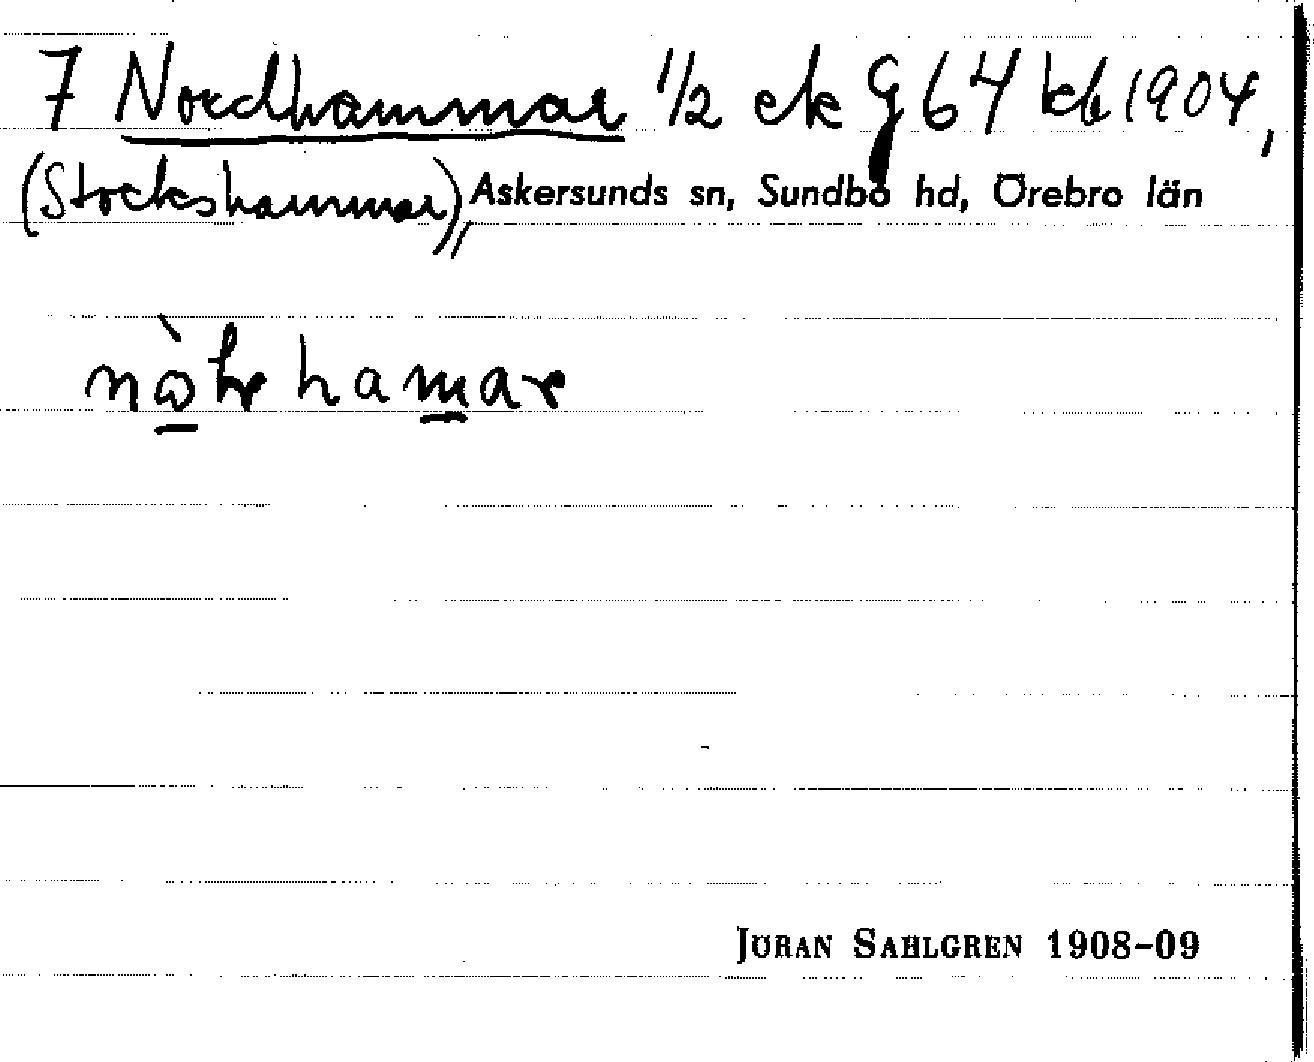 7 Nordhammar 1/2 ek g 64 kb 1904,
(Stockshammar)// Askersunds sn, Sundbo hd, Örebro län
hamar
JÖRAN SAHLGREN 1908-09